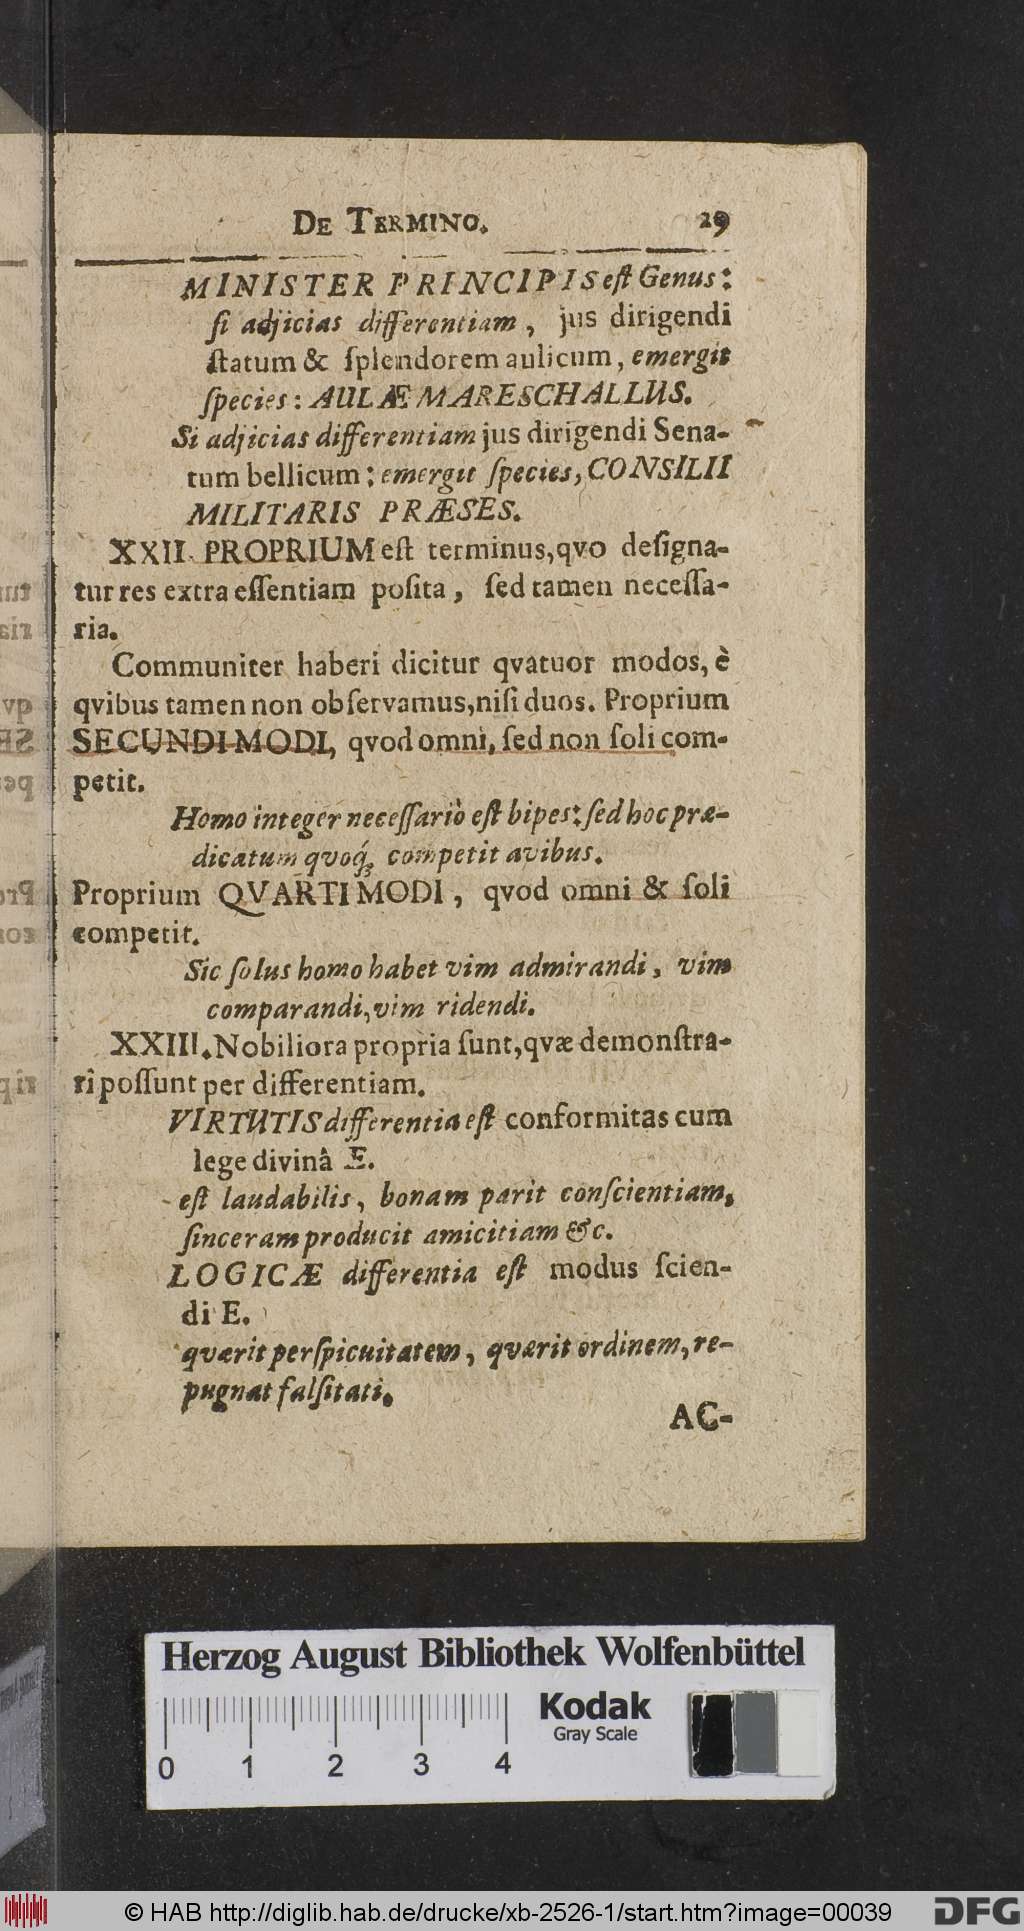 DE TERMINO. 29
MINISTER PRINCIPIS eſt Genus:
ſi adjicias differentiam, jus dirigendi
ſtatum & ſplendorem aulicum, emergit
ſpecies: AULÆ MARESCHALLUS.
Si adjicias differentiam jus dirigendi Sena-
tum bellicum: emergit ſpecies, CONSILII
MILITARIS PRÆSES.
XXII. PROPRIUM eſt terminus, qvo deſigna-
tur res extra eſſentiam poſita, ſed tamen neceſſa-
ria.
Communiter haberi dicitur qvatuor modos, è
qvibus tamen non obſervamus, niſi duos. Proprium
SECUNDI MODI, qvod omni, ſed non ſoli com-
petit.
Homo integer neceſſariò eſt bipes: ſed hoc præ-
dicatum qvoq́ꝫ competit avibus.
Proprium QVARTI MODI, qvod omni & ſoli
competit.
Sic ſolus homo habet vim admirandi, vim
comparandi, vim ridendi.
XXIII. Nobiliora propria ſunt, qvæ demonſtra-
ri poſſunt per differentiam.
VIRTUTIS differentia eſt conformitas cum
lege divinâ E.
eſt laudabilis, bonam parit conſcientiam,
ſinceram producit amicitiam &c.
LOGICÆ differentia eſt modus ſcien-
di E.
qværit perſpicuitatem, qværit ordinem, re-
pugnat falſitati.
AC-
Herzog August Bibliothek Wolfenbüttel
Kodak
Gray Scale
0 1 2 3 4
© HAB http://diglib.hab.de/drucke/xb-2526-1/start.htm?image=00039
DFG